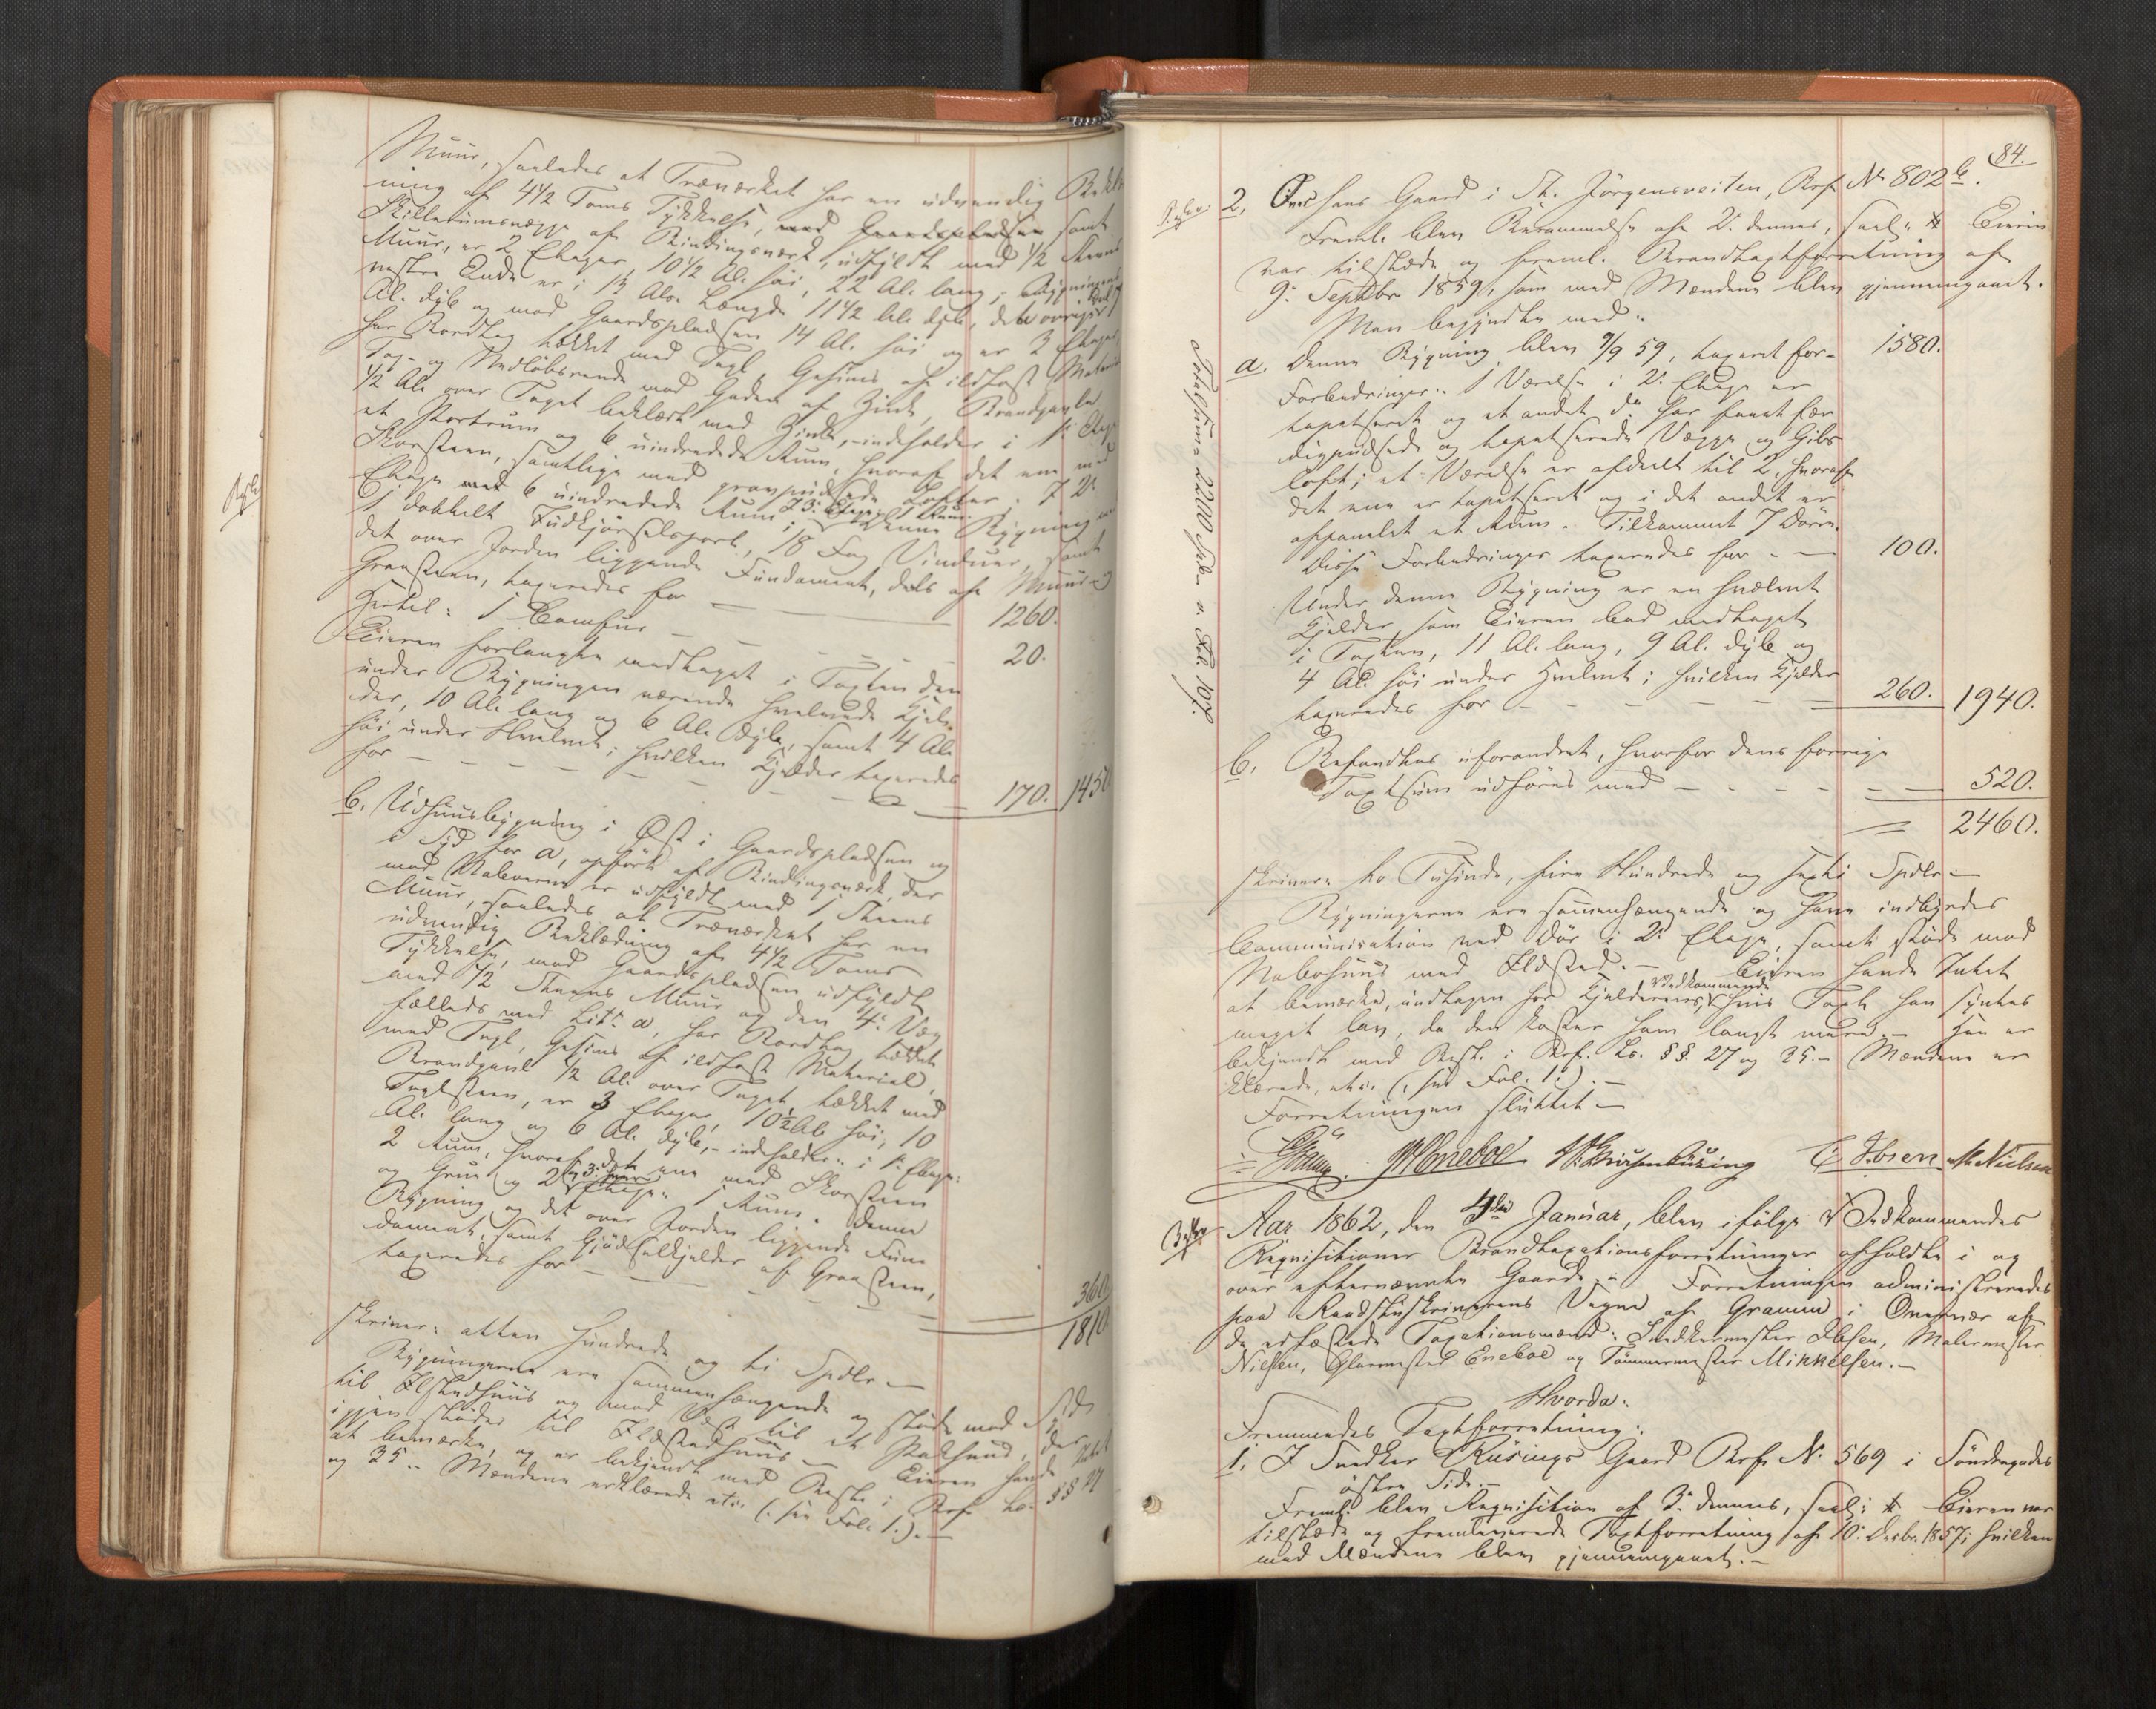 Muur, saaledes at Træværket har en udvendig Beklæd
ning af 4½ Toms Tykkelse, med Gaardspladsen samt
Skillerumsvægge af Bindingsværk, udfyldt med ½ Steens
Muur, er 2 Etager, 10½ Al. høi, 22 Al. lang; Bygningens
vestre Ende er i 13 Als. Længde 11½ Al. dyb, det øvrige
Al. dyb og mod Gaardspladsen 14 Al. høi og er 3 Etager,
har Bordtag tækket med Tegl, Gesims af ildfast Materiale
Tag- og Nedløbsrende mod Gaden af Zink, Brandgavle
½ Al. over Taget beklædt med Zink, indeholder i 1ste Etage
et Portrum og 6 uindredede Rum, hvoraf det ene med
Skorsteen, samtlige med gravpudsede Lofter; I 2.
Etage med 6 uindredede Rum; I 3. Etage: Rum.
1 dobbelt Indkjørselsport, 18 Fag Vinduer, samt
Denne Bygning og
det over Jorden liggende Fundament, dels af Muur- og
Graasteen, taxeredes for — 1260.
Hertil: 1 Comfur — 20.
Eieren forlangte medtaget i Taxten den
under Bygningen værende hvælvede Kjel-
der, 10 Al. lang og 6 Al. dyb, samt 4 Al.
høi under Hvælvet; hvilken Kjelder taxeredes
for — 170. 1450
b. Udhuusbygning i Øst i Gaardspladsen og
i Syd for a, opført af Bindingsværk, der
mod Naboerne er udfyldt med 1 Steens
Muur, saaledes at Træværket har en
udvendig Beklædning af 4½ Toms
Tykkelse, mod Gaardspladsen udfyldt
med ½ Steens Muur og den 4. Væg
fælleds med Litr. a, har Bordtag tækket
med Tegl, Gesims af ildfast Material,
Brandgavl ½ Al. over Taget tækket med
Teglsteen, er 3 Etager, 10½ Al. høi, 10
Al. lang og 6 Al. dyb, - indeholder: i 1. Etage:
2 Rum, hvoraf det ene med Skorsteen
og Grue og 2 og 3. Etage: 1 Rum. Denne
Bygning og det over Jorden liggende Fun
dament, samt Gjødselkjelder af Graasteen,
taxeredes for — 360
1810
skriver: atten Hundrede og ti Spdlr —
Bygningerne ere sammenhængende og støde mod Syd
til Ildstedhuus og mod Øst til et Pakhuus, der
igjen støder til Ildstedhuus. — Eieren havde Intet
at bemærke, og er bekjendt med Besk. i Brf. Lo. §§ 27
og 35. — Mændene erklærede etc. (: see Fol. 1:). —
84.
2. Over hans Gaard i St. Jørgensveiten, Brf. No 802 b.
Freml. blev Berammelse af 2. dennes, saal: # Eieren
var tilstede og freml. Brandtaxtforretning af
9. Septbr 1859, som med Mændene blev gjennemgaaet.
Man begyndte med:
a. Denne Bygning blev 9/9 59, taxeret for — 1580.
Forbedringer: 1 Værelse i 2. Etage er
tapetseret og et andet do har faaet fær
digpudsede og tapetserede Vægge og Gibs
loft; et Værelse er afdeelt til 2, hvoraf
det ene er tapetseret og i det andet er
afpanelet et Rum. Tilkommet 7 Døre.
Disse Forbedringer taxeredes for — 100.
Under denne Bygning er en hvælvet
Kjelder, som Eieren bad medtaget
i Taxten, 11 Al. lang, 9 Al. dyb og
4 Al. høi under Hvælvet; hvilken Kjelder
taxeredes for — 260. 1940.
b. Befandtes uforandret, hvorfor dens forrige
Taxtsum udføres med — 520.
2460.
skriver: to Tusinde, fire Hundrede og sexti Spdlr —
Bygningerne ere sammenhængende og have indbyrdes
Communication ved Dør i 2. Etage, samt støde mod
Nabohuus med Ildsted. — Eieren havde Intet
at bemærke, undtagen for Kjelderens Vedkommende, hvis Taxt han syntes
meget lav, da den koster ham langt mere. — Han er
bekjendt med Besk. i Brf. Lo. §§. 27 og 35. — Mændene er
klærede, etc. (: see Fol. 1:). —
Forretningen sluttet —
Gramm. Eneboe Ibsen M. Nielsen
Aar 1862, den 4de Januar, blev ifølge Vedkommendes
Requisitioner Brandtaxationsforretninger afholdte i og
over efternævnte Gaarde. — Forretningen administreredes
paa Raadstuskriverens Vegne af Gramm i Overvær af
de edfæstede Taxationsmænd: Snedkermester Ibsen, Malermester
Nielsen, Glarmester Eneboe og Tømmermester Mikkelsen. —
Hvorda:
Fremmedes Taxtforretning:
1. I Snedker Rüsings Gaard Brf. No 569 i Søndregades
østre Side. —
Freml. blev Requisition af 3. dennes, saal: # Eieren var
tilstede og fremleverede Taxtforretning af 10. Decbr. 1857; hvilken
med Mændene blev gjennemgaaet. —